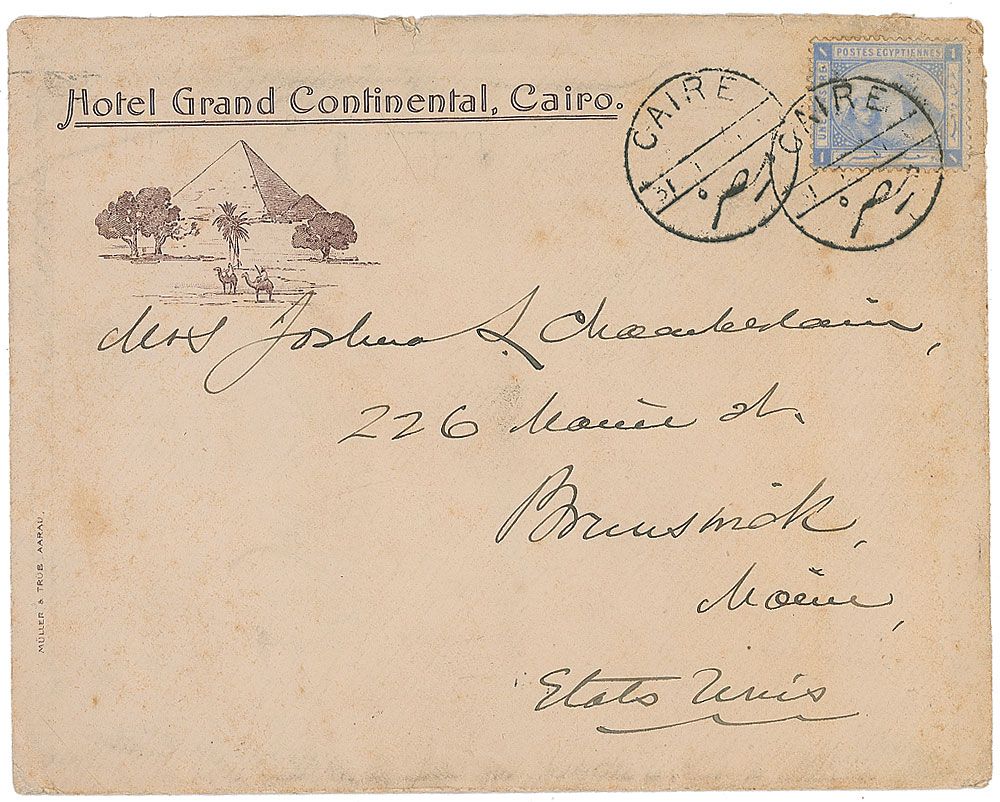 Hotel Grand Continental, Cairo.
POSTES EGYPTIENNES
CAIRE
CAIRE
31 I
Mrs Joshua L Chamberlain,
226 Maine St.
Brunswick,
Maine,
Etats Unis
MÜLLER & TRÜB AARAU.